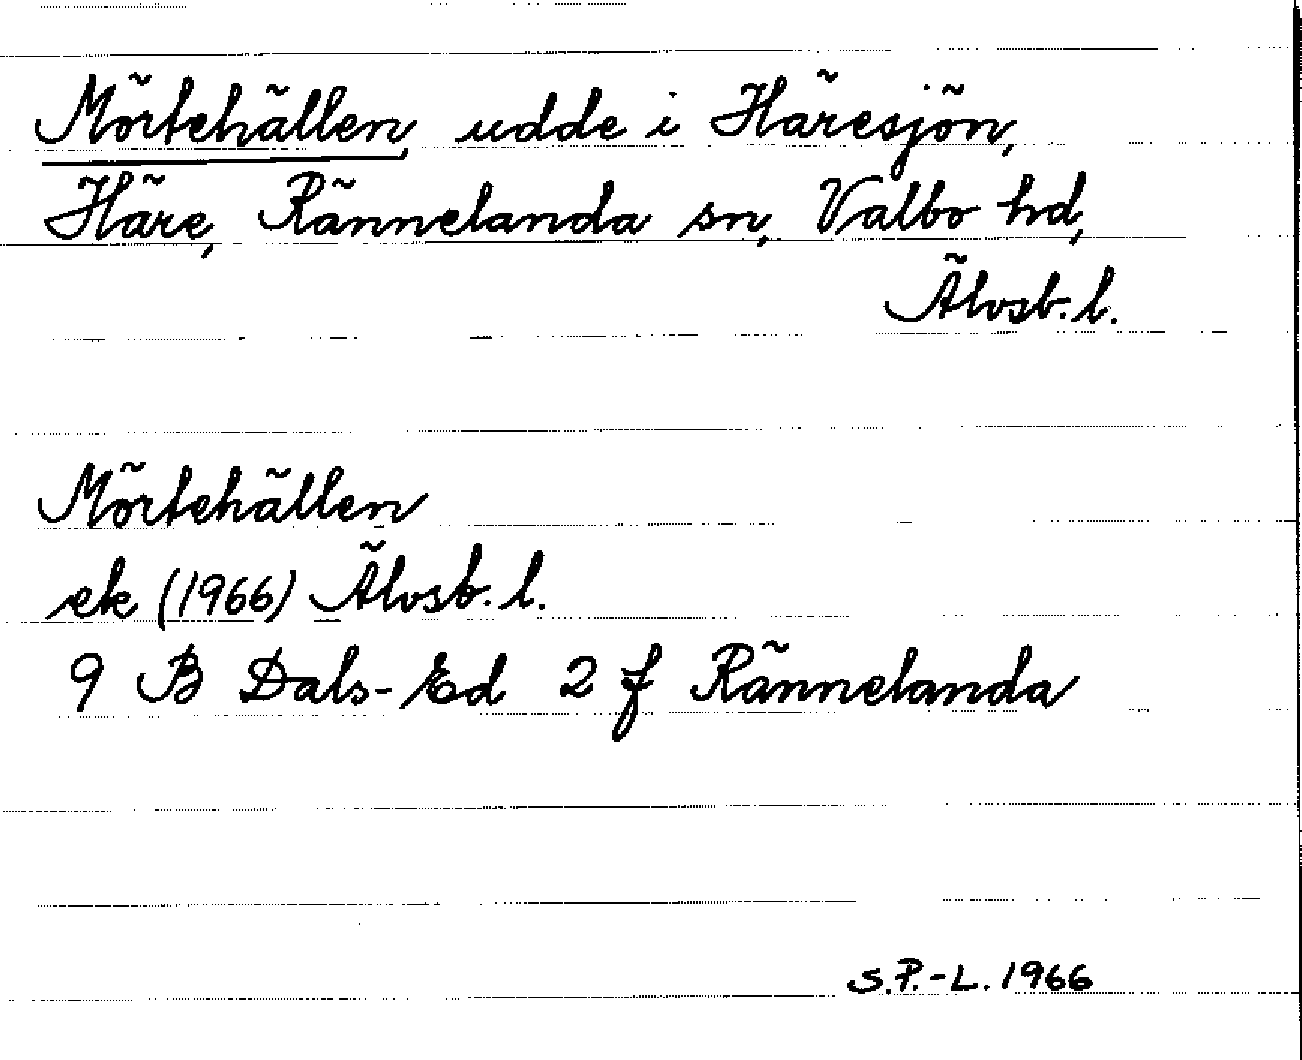 Mörtehällen, udde i Häresjön,
Häre, Rännelanda sn, Valbo hd,
Älvsb. l.
Mörtehällen
ek (1966) Älvsb. l.
9 B Dals-Ed 2 f Rännelanda
S.P.-L. 1966